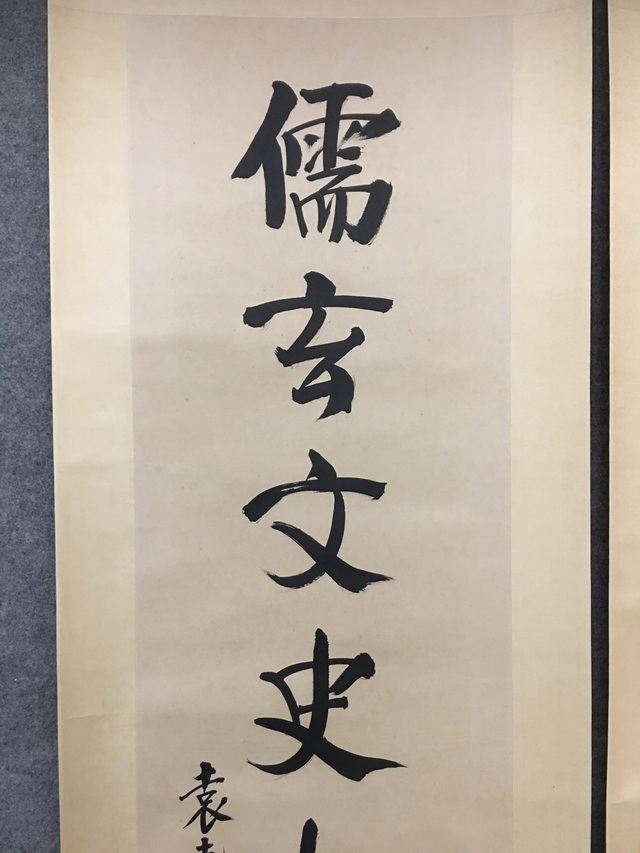 儒玄文史
袁